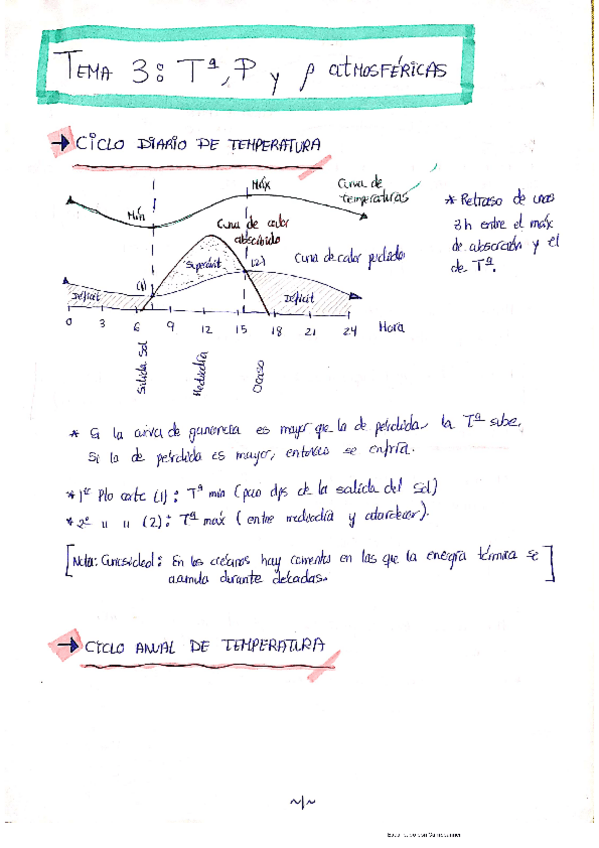 TEMA 3: Tª, P y ρ atmosféricas
→ CICLO DIARIO DE TEMPERATURA
Máx
Curva de
temperaturas
Mín
Curva de calor
absorbido
* Retraso de unas
3h entre el máx
de absorción y el
de Tª.
Superávit
(2)
Curva de calor perdido
(1)
Déficit
Déficit
0 3 6 9 12 15 18 21 24 Hora
Salida Sol
Mediodía
Ocaso
* Si la curva de ganancia es mayor que la de pérdida, la Tª sube.
Si la de pérdida es mayor, entonces se enfría.
* 1er Pto corte (1): Tª mín (poco dps de la salida del Sol)
* 2º " " (2): Tª máx (entre mediodía y atardecer).
[Nota: Curiosidad: En los océanos hay corrientes en las que la energía térmica se
acumula durante décadas.]
→ CICLO ANUAL DE TEMPERATURA
~1~